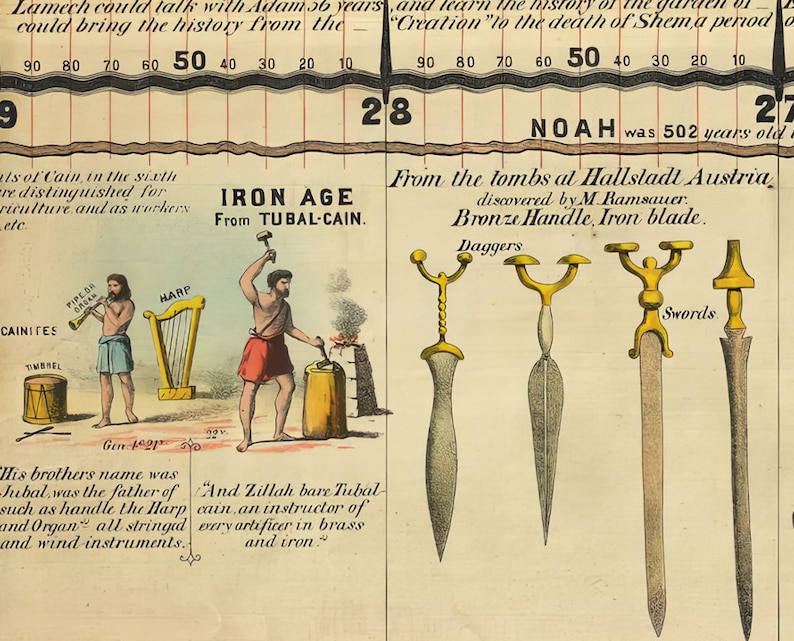 Lamech could talk with Adam 56 years
could bring the history from the —
and learn the history of the garden of —
"Creation" to the death of Shem, a period
90 80 70 60 50 40 30 20 10
90 80 70 60 50 40 30 20 10
9
28
27
NOAH was 502 years old
in the sixth
are distinguished for
and as workers
etc.
IRON AGE
From TUBAL-CAIN.
CAINITES
PIPE OR
ORGAN
HARP
TIMBREL
Gen. 4. c. 21 v.
22 v.
"His brothers name was
Jubal, was the father of
such as handle the Harp
and Organ" all stringed
and wind instruments.
"And Zillah bare Tubal-
cain, an instructor of
every artificer in brass
and iron."
From the tombs at Hallstadt Austria
discovered by M. Ramsauer.
Bronze Handle, Iron blade.
Daggers
Swords